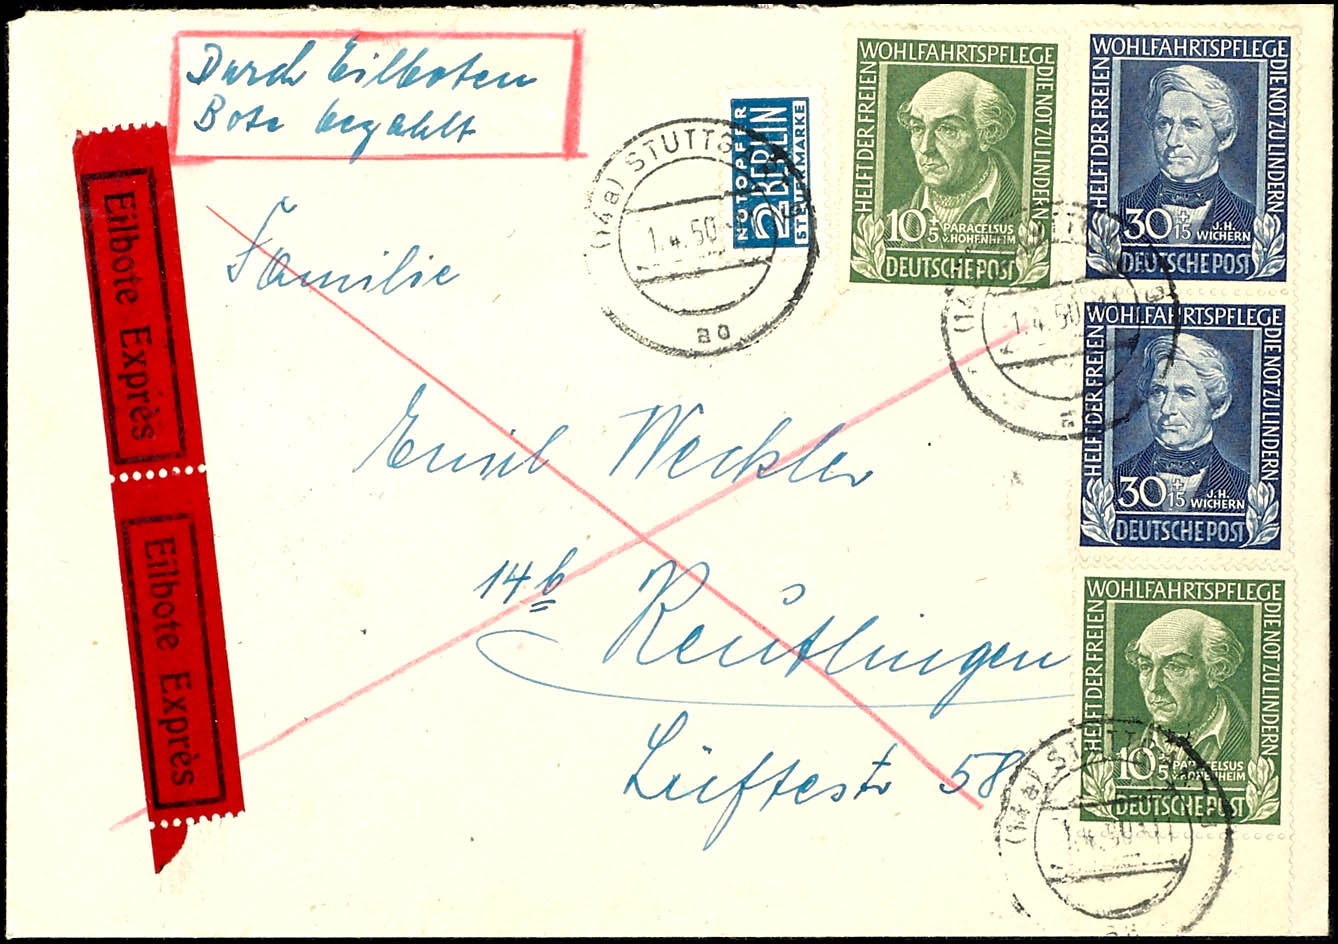 Durch Eilboten
Bote bezahlt
Eilbote Exprès
Eilbote Exprès
NOTOPFER
2 BERLIN
STEUERMARKE
(14a) STUTTG
1.4.50
ao
WOHLFAHRTSPFLEGE
HELFT DER FREIEN
DIE NOT ZU LINDERN
10+5
PARACELSUS
v. HOHENHEIM
DEUTSCHE POST
WOHLFAHRTSPFLEGE
HELFT DER FREIEN
DIE NOT ZU LINDERN
30+15
J.H.
WICHERN
DEUTSCHE POST
(14a)
1.4.50-11
a
WOHLFAHRTSPFLEGE
HELFT DER FREIEN
DIE NOT ZU LINDERN
30+15
J.H.
WICHERN
DEUTSCHE POST
WOHLFAHRTSPFLEGE
HELFT DER FREIEN
DIE NOT ZU LINDERN
10+5
PARACELSUS
v. HOHENHEIM
DEUTSCHE POST
(14a) STUTTG
1.4.50-11
Familie
Emil Weckler
14b Reutlingen
58